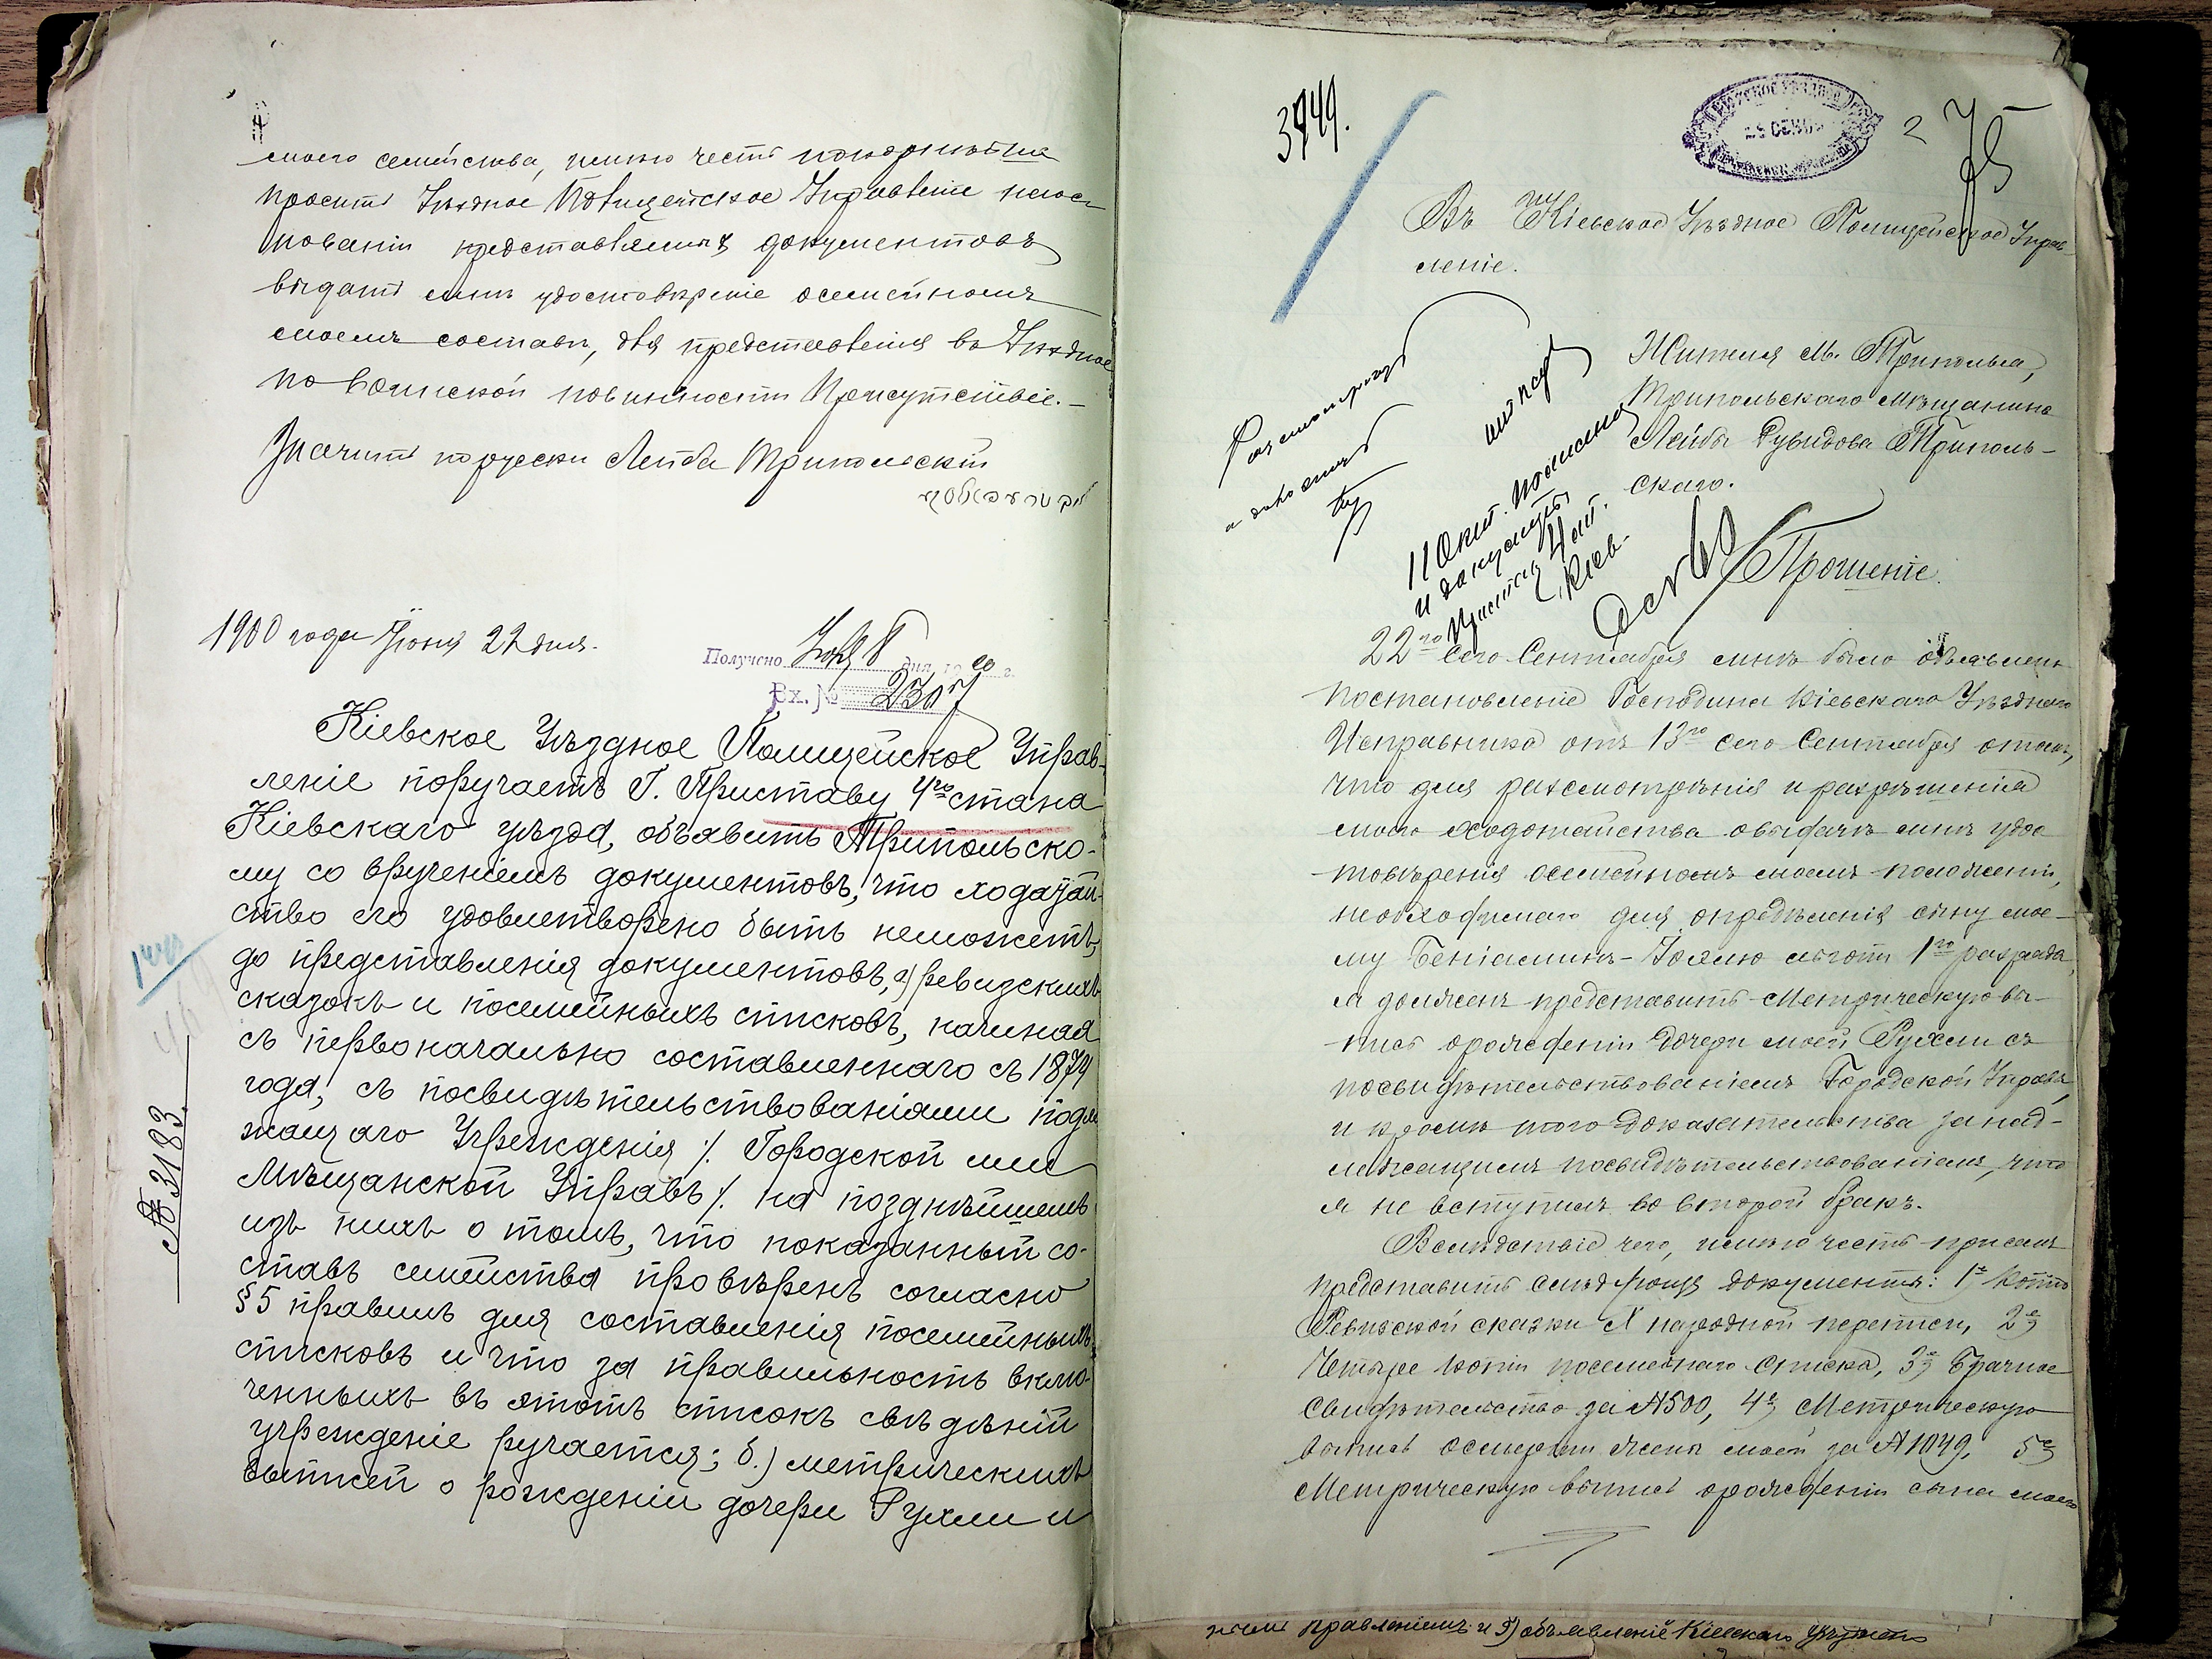 моего семейства, имею честь покорнѣйше
просить Уѣздное Полицейское Управленіе на ос-
нованіи представляемыхъ документовъ
выдать мнѣ удостовѣреніе о семейномъ
моемъ составѣ, для представленія въ Уѣздное
по воинской повинности Присутствіе.-
Значитъ по русски Лейба Трипольскій
1900 года Іюня 22 дня.
Получено 8 дня 1900 г.
Вх. № 2307
Кіевское Уѣздное Полицейское Управ-
леніе поручаетъ Г. Приставу 4го стана
Кіевскаго уѣзда, объявить Трипольско-
му со врученіемъ документовъ, что ходатай-
ство его удовлетворено быть неможетъ,
до представленія документовъ, а) ревизскихъ
сказокъ и посемейныхъ списковъ, начиная
съ первоначально составленнаго съ 1874
года, съ посвидѣтельствованіями подле
жащаго Учрежденія /. Городской или
Мѣщанской Управъ /. на позднѣйшемъ
изъ нихъ о томъ, что показанный со-
ставъ семейства провѣренъ согласно
§ 5 правилъ для составленія посемейныхъ
списковъ и что за правильность вклю-
ченныхъ въ этотъ списокъ свѣдѣній
учрежденіе ручается; б.) метрическихъ
выписей о рожденіи дочери Рухли и
№ 3183.
3749.
2
75
Въ Кіевское Уѣздное Полицейское Управ-
леніе.
Жителя м. Триполья,
Трипольскаго мѣщанина
Лейбы Рувидова Триполь-
скаго.
11 Окт.
и документы
Кіев.
Прошеніе.
22го сего Сентября мнѣ было объявлено
постановленіе Господина Кіевскаго Уѣзднаго
Исправника отъ 13го сего Сентября о томъ,
что для разсмотрѣнія и разрѣшенія
моего ходотайства о выдачѣ мнѣ удос
товѣренія о семейномъ моемъ положеніи,
необходимаго для опредѣленія сыну мое-
му Беніаминъ-Іоялю льготы 1го разряда,
я долженъ представить Метрическую вы-
пись о рожденіи дочери моей Рухли съ
посвидѣтельствованіемъ Городской Управы,
и кромѣ того доказательства за над-
лежащимъ посвидѣтельствованіемъ, что
я не вступилъ во второй бракъ.
Вслѣдствіе чего, имѣю честь при семъ
представить слѣдующія документы: 1е Копію
Ревизской сказки X народной переписи, 2е
Четыре копіи посемейнаго списка, 3е Брачное
Свидѣтельство за №500, 4е Метрическую
выпись о смерти жены моей за №1049, 5е
Метрическую выпись о рожденіи сына моего
правленіемъ и 9) объявленіе Кіевскаго уѣзднаго